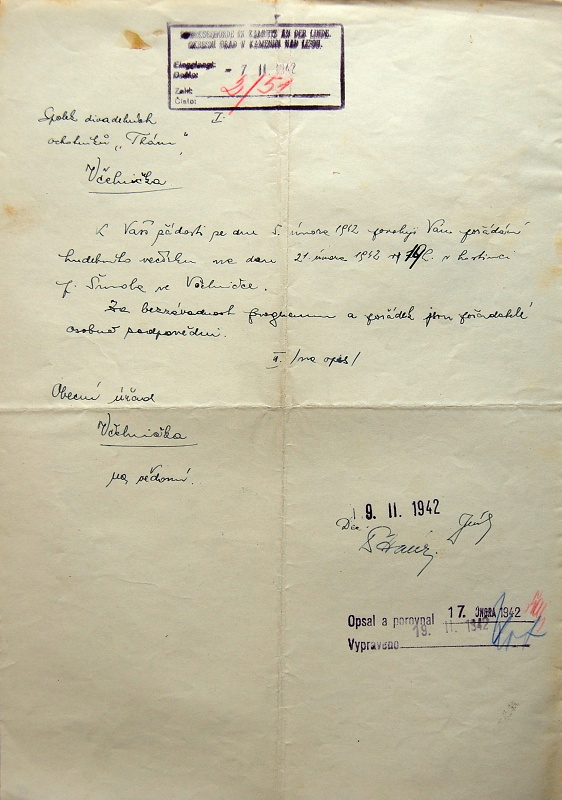 BEZIRKSBEHÖRDE IN KAMNITZ AN DER LINDE.
OKRESNÍ ÚŘAD V KAMENICI NAD LIPOU.
Eingelangt:
Došlo: - 7. II. 1942
Zahl:
Číslo: 2/51
Spolek divadelních I.
ochotníků „Thám“
Včelnička
K Vaší žádosti ze dne 5. února 1942 povoluji Vám pořádání
hudebního večírku na den 21. února 1942 v hostinci
p. Šimola ve Včelničce.
Za bezzávadnost programu a pořádek jsou pořadatelé
osobně zodpovědni.
II. /na opis/
Obecní úřad
Včelnička
na vědomí.
9. II. 1942
Opsal a porovnal 17. ÚNORA 1942
Vypraveno 19. II. 1942